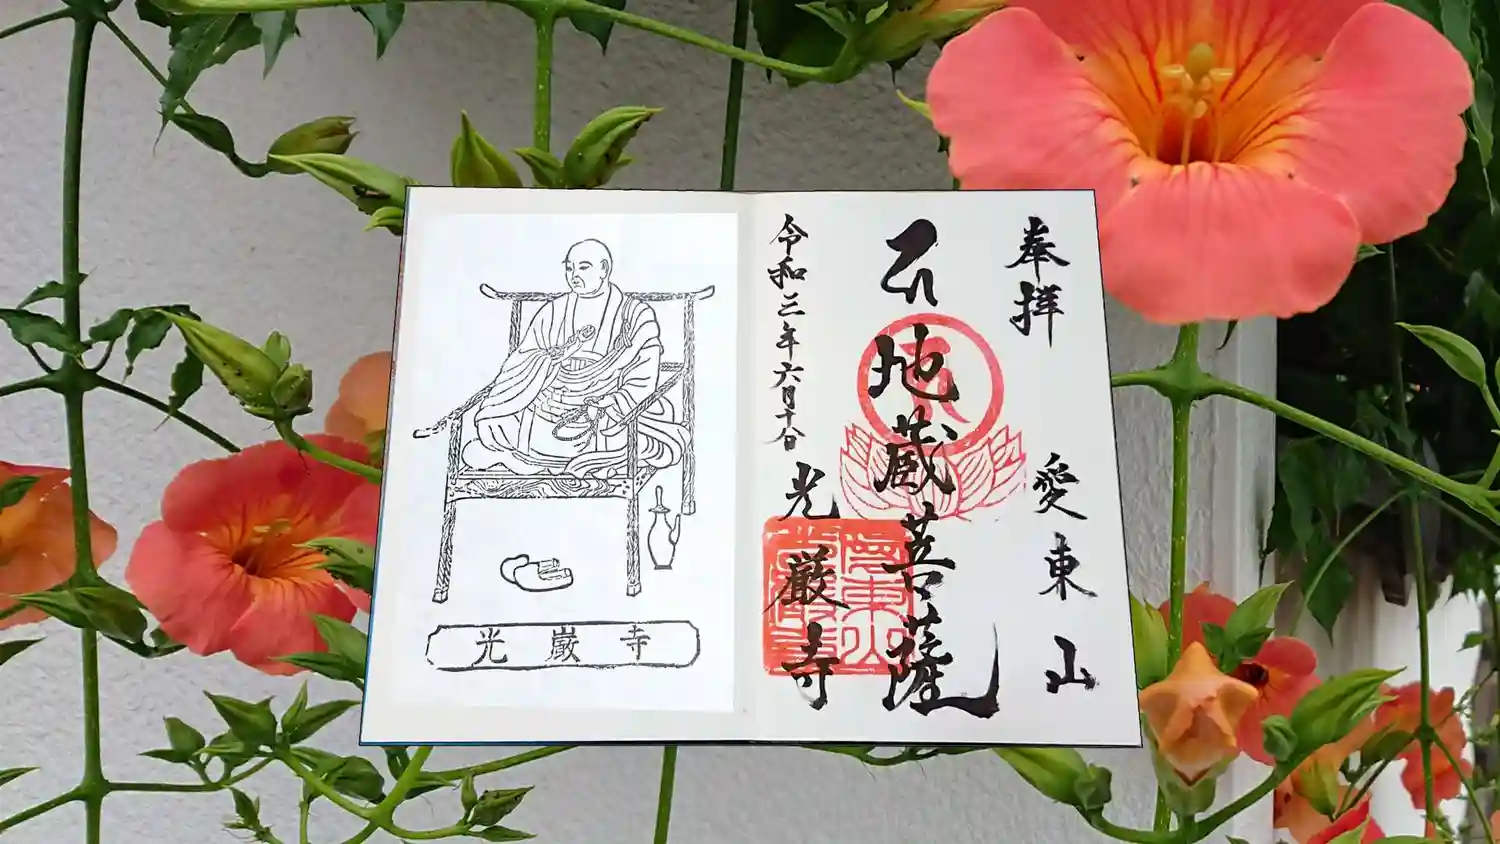 奉拝
愛東山
地蔵菩薩
令和三年六月十八日
光厳寺
光巌寺